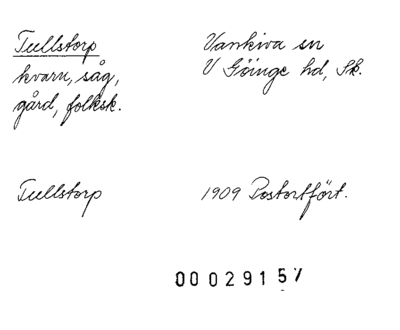 Tullstorp Vankiva sn
kvarn, såg, V Göinge hd, Sk.
gård, folksk.
Tullstorp 1909 Postortfört.
00029157